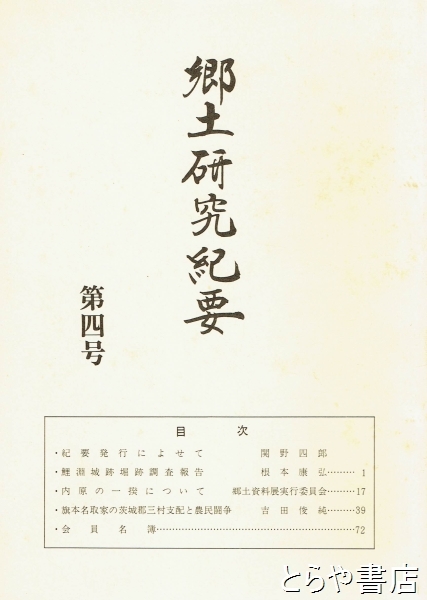 郷土研究紀要
第四号
目次
・紀要発行によせて 関野四郎
・鯉淵城跡堀跡調査報告 根本康弘………1
・内原の一揆について 郷土資料展実行委員会………17
・旗本名取家の茨城郡三村支配と農民闘争 吉田俊純………39
・会員名簿………72
とらや書店